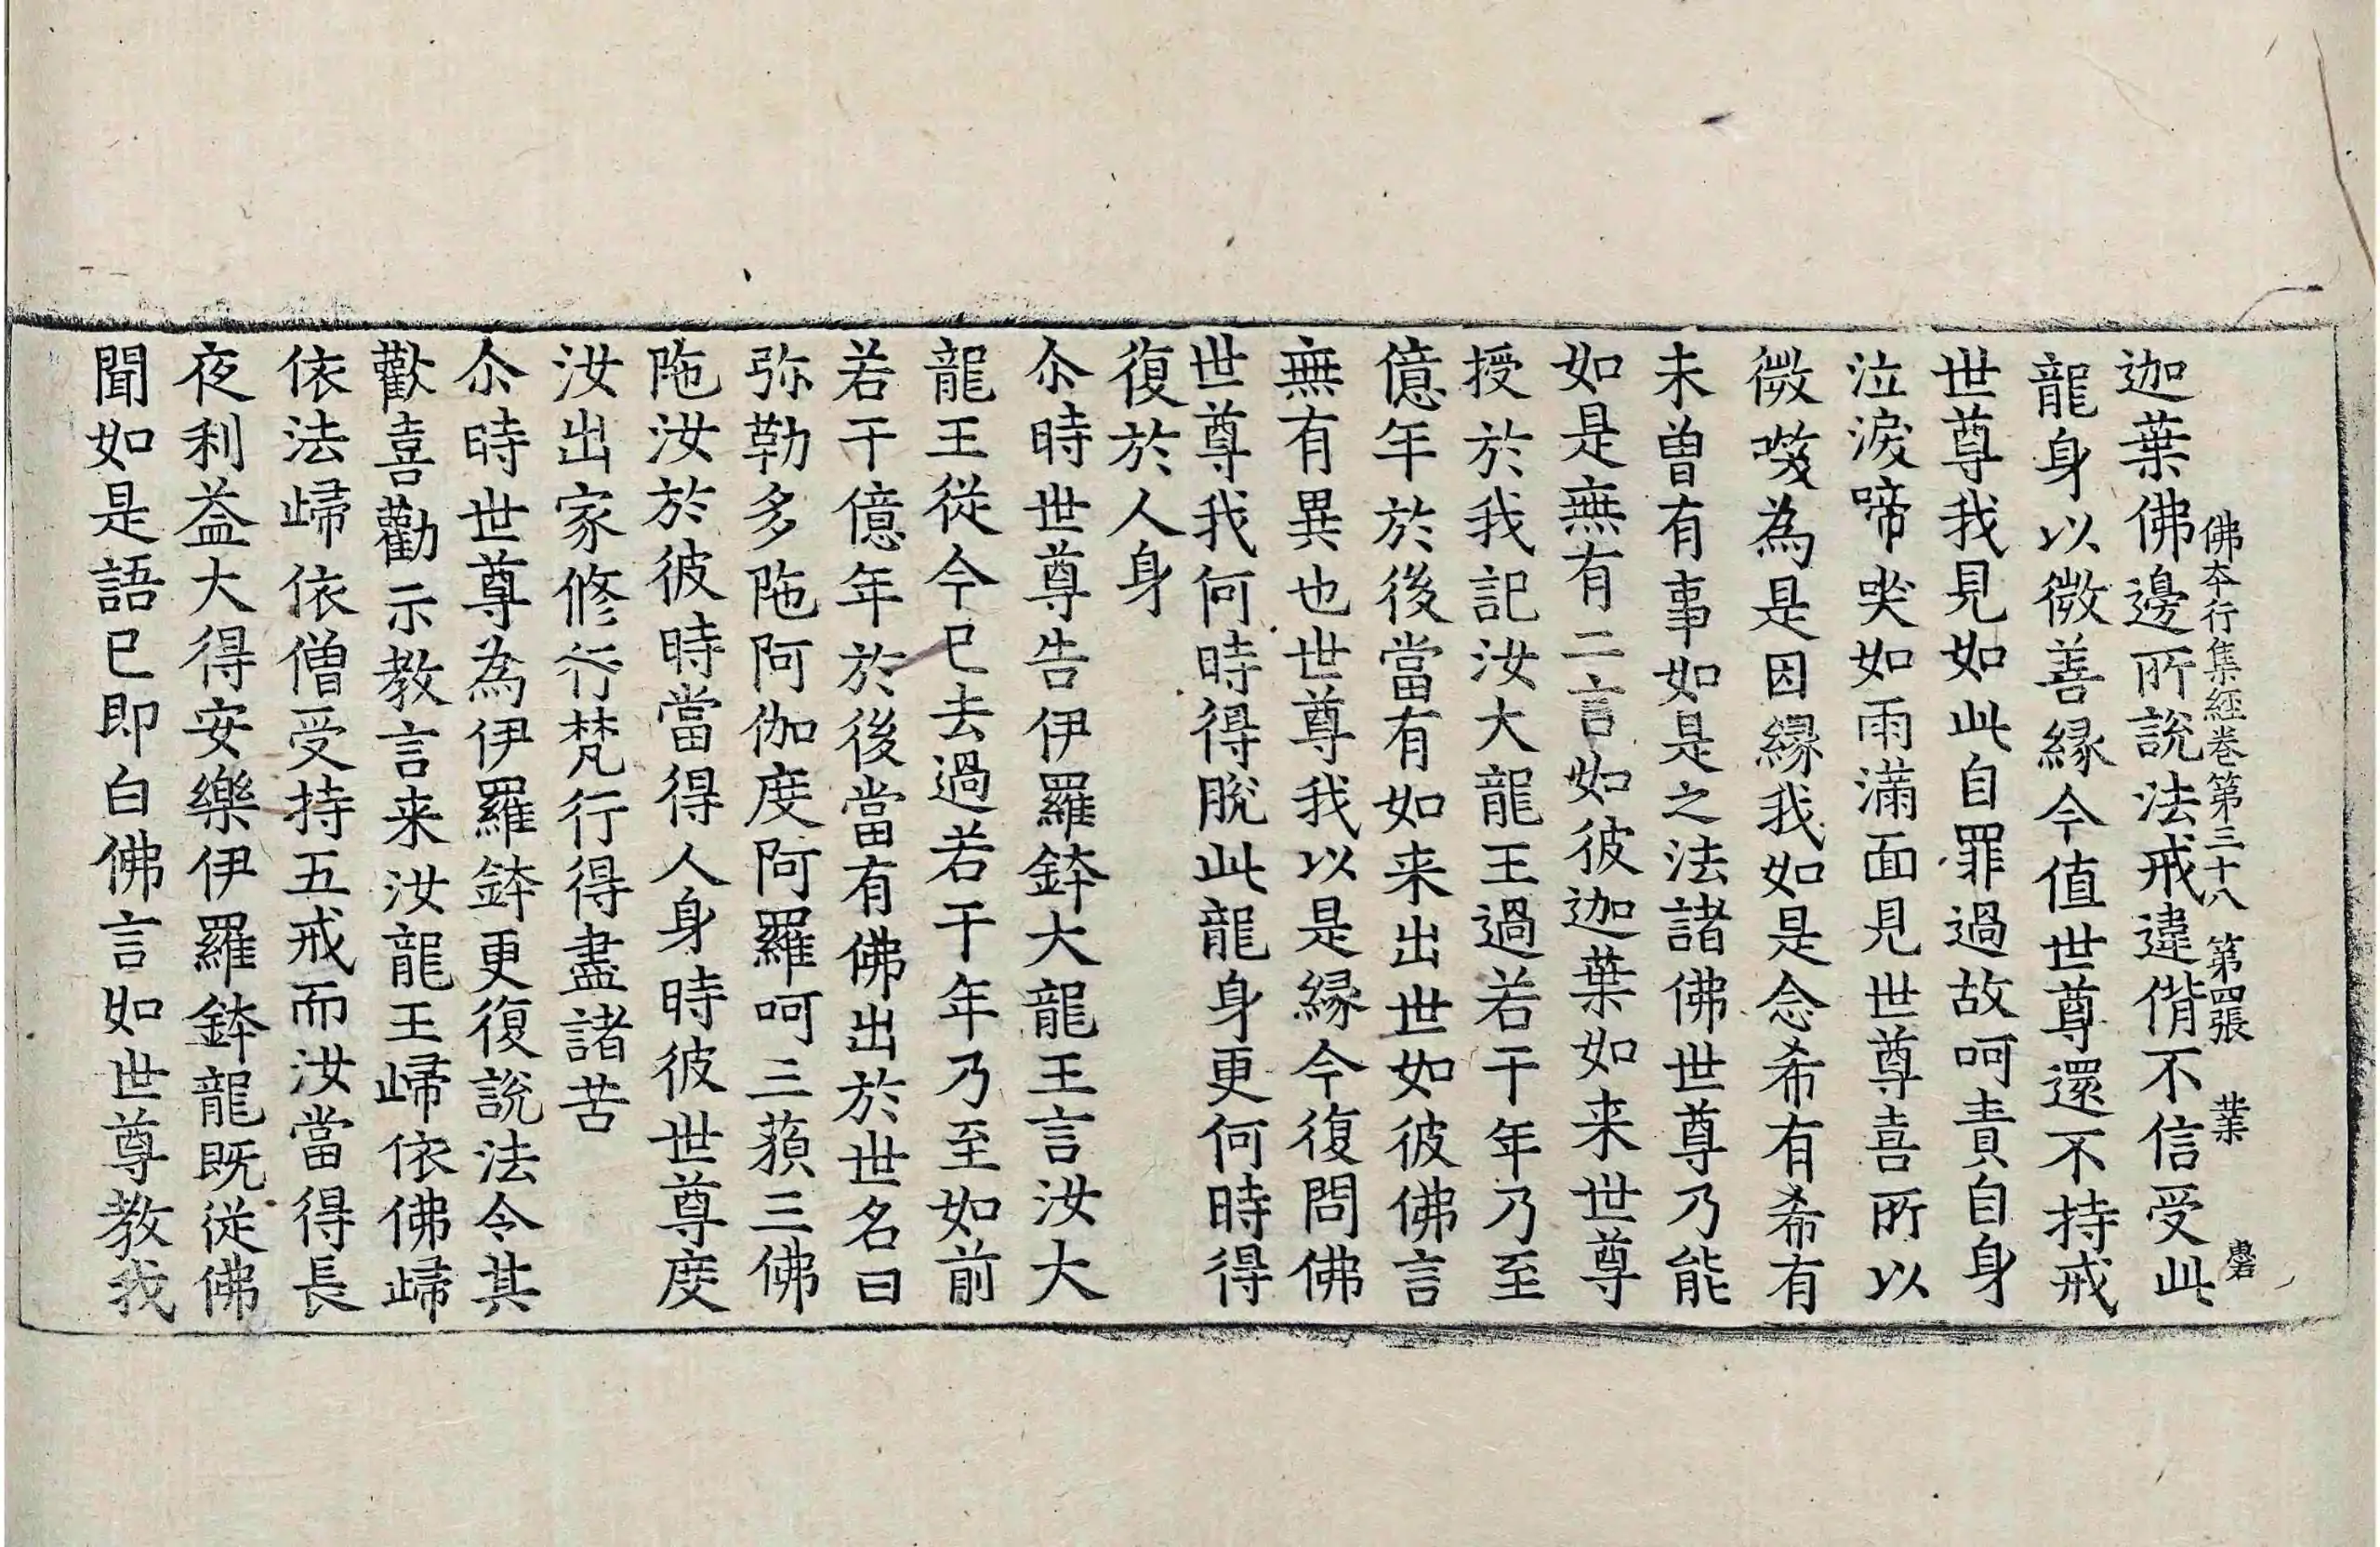 佛本行集經卷第三十八　第四張　業　磬
迦葉佛邊所說法戒違偝不信受此
龍身以微善緣今值世尊還不持戒
世尊我見如此自罪過故呵責自身
泣淚啼哭如雨滿面見世尊喜所以
微笑為是因緣我如是念希有希有
未曾有事如是之法諸佛世尊乃能
如是無有二言如彼迦葉如来世尊
授於我記汝大龍王過若干年乃至
億年於後當有如来出世如彼佛言
無有異也世尊我以是緣今復問佛
世尊我何時得脫此龍身更何時得
復於人身
尒時世尊告伊羅鉢大龍王言汝大
龍王從今已去過若干年乃至如前
若干億年於後當有佛出於世名曰
弥勒多陁阿伽度阿羅呵三藐三佛
陁汝於彼時當得人身時彼世尊度
汝出家修行梵行得盡諸苦
尒時世尊為伊羅鉢更復說法令其
歡喜勸示教言来汝龍王歸依佛歸
依法歸依僧受持五戒而汝當得長
夜利益大得安樂伊羅鉢龍既從佛
聞如是語已即白佛言如世尊教我